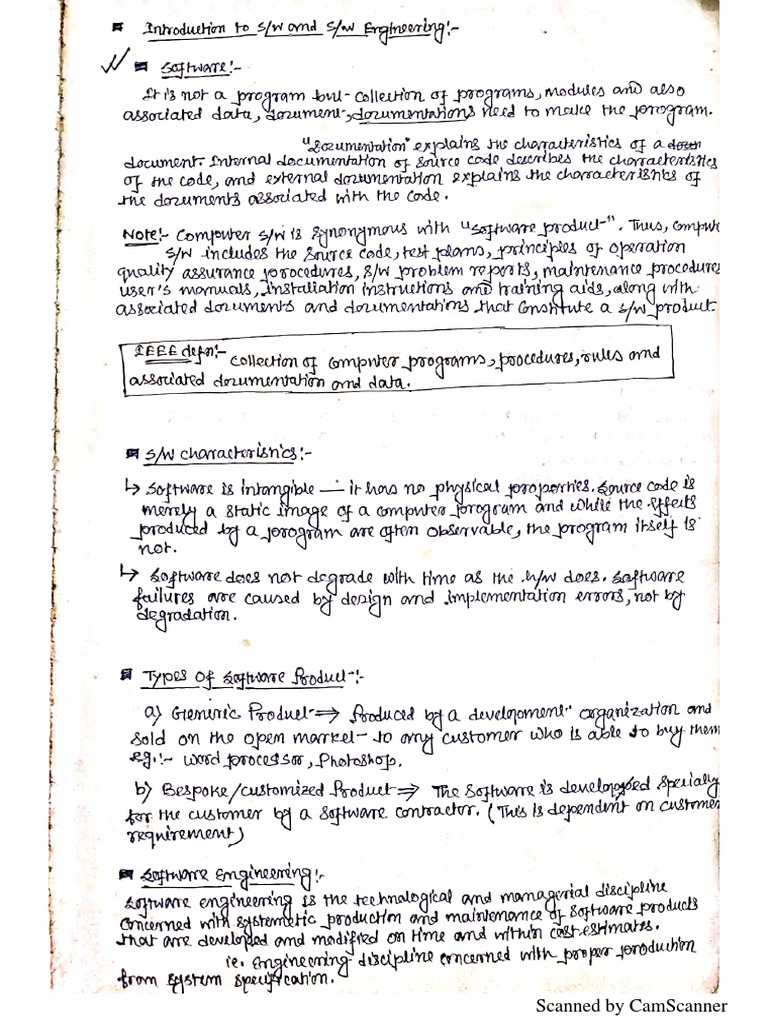 Introduction to S/W and S/W Engineering:-
Software:-
It is not a program but collection of programs, modules and also
associated data, document, documentations need to make the program.
"Documentation" explains the characteristics of a
document. Internal documentation of source code describes the characteristics
of the code, and external documentation explains the characteristics of
the documents associated with the code.
Note:- Computer S/W is synonymous with "software product". Thus, compute
S/W includes the source code, test plans, principles of operation
quality assurance procedures, S/W problem reports, maintenance procedures
user's manuals, installation instructions and training aids, along with
associated documents and documentations that constitute a S/W product.
IEEE defn:- Collection of computer programs, procedures, rules and
associated documentation and data.
S/W characteristics:-
↳ Software is intangible — it has no physical properties. Source code is
merely a static image of a computer program and while the effects
produced by a program are often observable, the program itself is
not.
↳ Software does not degrade with time as the h/w does. Software
failures are caused by design and implementation errors, not by
degradation.
Types of Software Product:-
a) Generic Product ⇒ Produced by a development organization and
sold on the open market to any customer who is able to buy them
eg:- word processor, Photoshop.
b) Bespoke/customized Product ⇒ The software is developed specially
for the customer by a software contractor. (This is dependent on customer
requirement)
Software Engineering:-
Software engineering is the technological and managerial discipline
concerned with systemetic production and maintenance of software products
that are developed and modified on time and within cost estimates.
ie. Engineering discipline concerned with proper production
from system specification.
Scanned by CamScanner